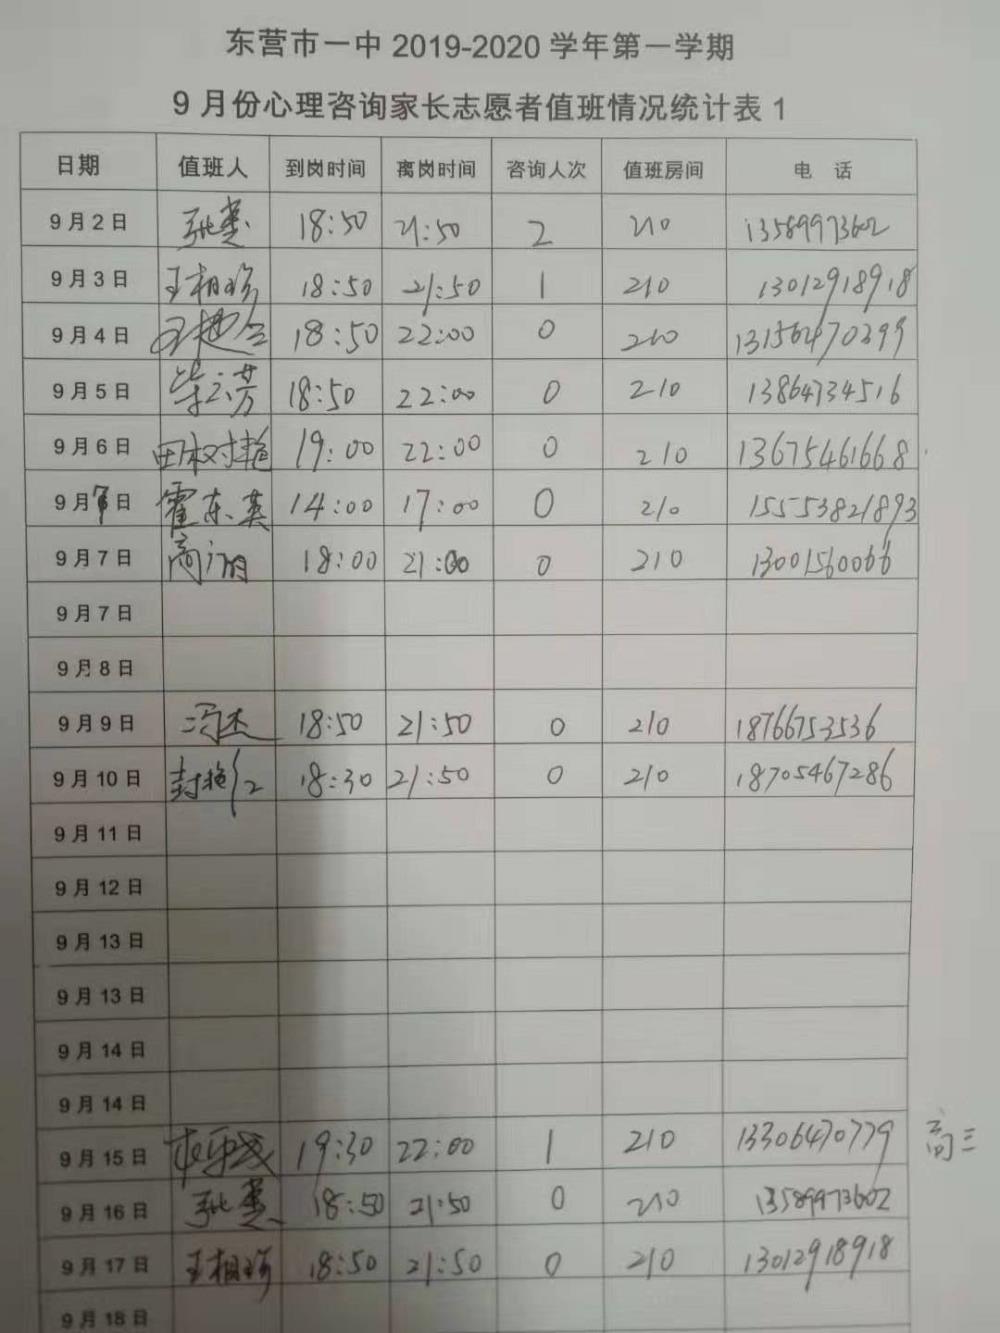 东营市一中 2019-2020 学年第一学期
9 月份心理咨询家长志愿者值班情况统计表 1
日期 值班人 到岗时间 离岗时间 咨询人次 值班房间 电 话
9 月 2 日 18:50 21:50 2 210 13589973602
9 月 3 日 王相珍 18:50 21:50 1 210 13012918918
9 月 4 日 18:50 22:00 0 210 13156470399
9 月 5 日 18:50 22:00 0 210 13864734516
9 月 6 日 田树艳 19:00 22:00 0 210 13675461668
9 月 7 日 霍东英 14:00 17:00 0 210 15553821893
9 月 7 日 18:00 21:00 0 210 13001560066
9 月 7 日
9 月 8 日
9 月 9 日 冯杰 18:50 21:50 0 210 18766753536
9 月 10 日 18:30 21:50 0 210 18705467286
9 月 11 日
9 月 12 日
9 月 13 日
9 月 13 日
9 月 14 日
9 月 14 日
9 月 15 日 19:30 22:00 1 210 13306470779 高三
9 月 16 日 18:50 21:50 0 210 13589973602
9 月 17 日 王相珍 18:50 21:50 0 210 13012918918
9 月 18 日